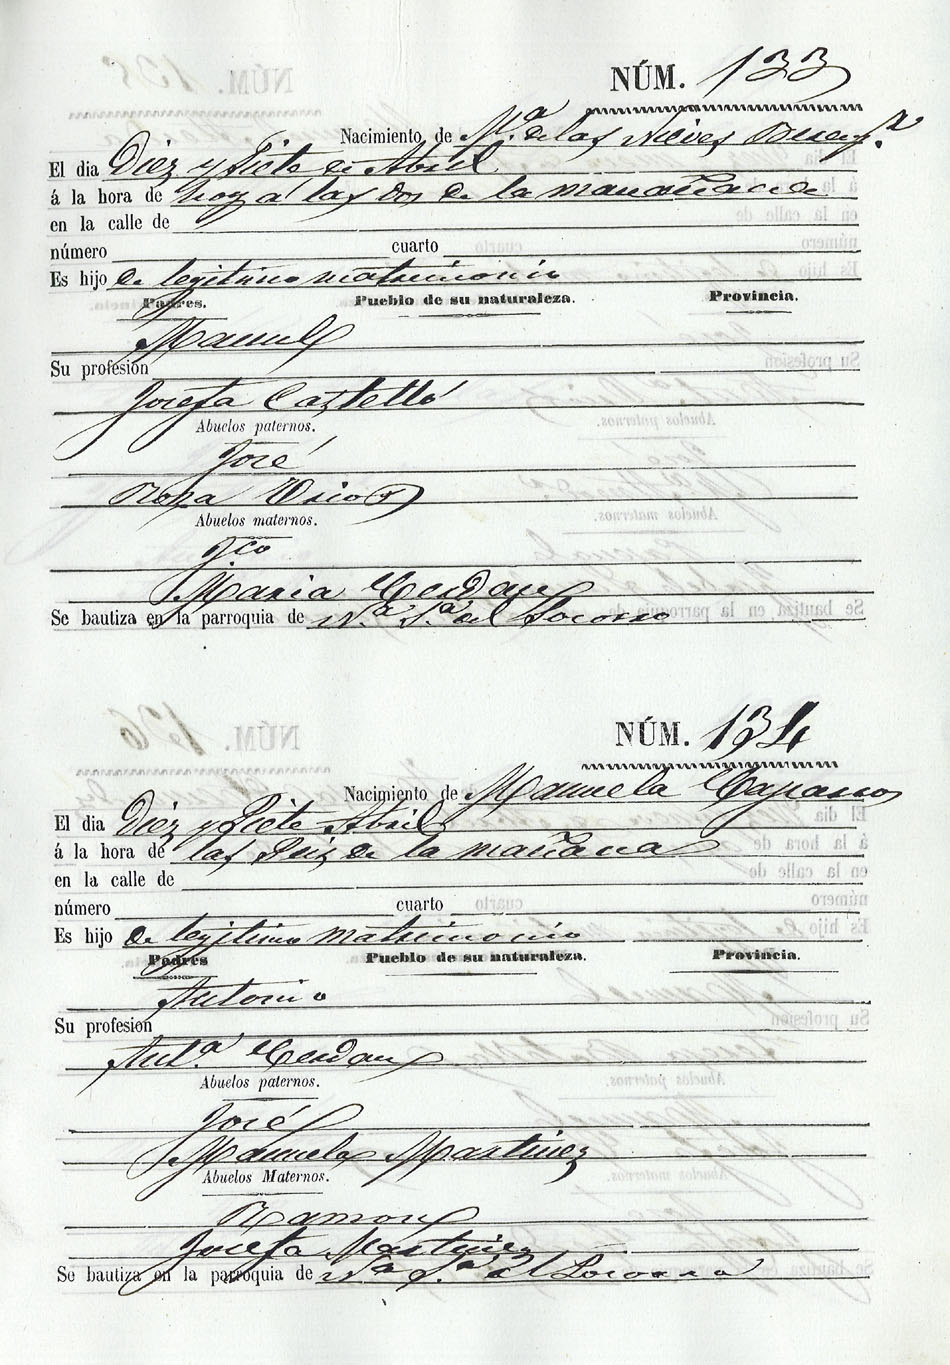 NÚM. 133
Nacimiento de M.ª de las Nieves
El dia Diez y Siete de Abril
á la hora de hoy a las dos de la manañana
en la calle de
número cuarto
Es hijo de legitimo matrimonio
Padres. Pueblo de su naturaleza. Provincia.
Manuel
Su profesión
Josefa Castelló
Abuelos paternos.
José
Rosa
Abuelos maternos.
Fco
Maria Cerdan
Se bautiza en la parroquia de N.ª S.ª del Socorro
NÚM. 134
Nacimiento de Manuela
El dia Diez y Siete Abril
á la hora de las Seis de la mañana
en la calle de
número cuarto
Es hijo de legitimo matrimonio
Padres Pueblo de su naturaleza. Provincia.
Antonio
Su profesión
Ant.ª Cerdan
Abuelos paternos.
José
Manuela Martinez
Abuelos Maternos.
Ramon
Josefa Martinez
Se bautiza en la parroquia de N.ª S.ª del Socorro